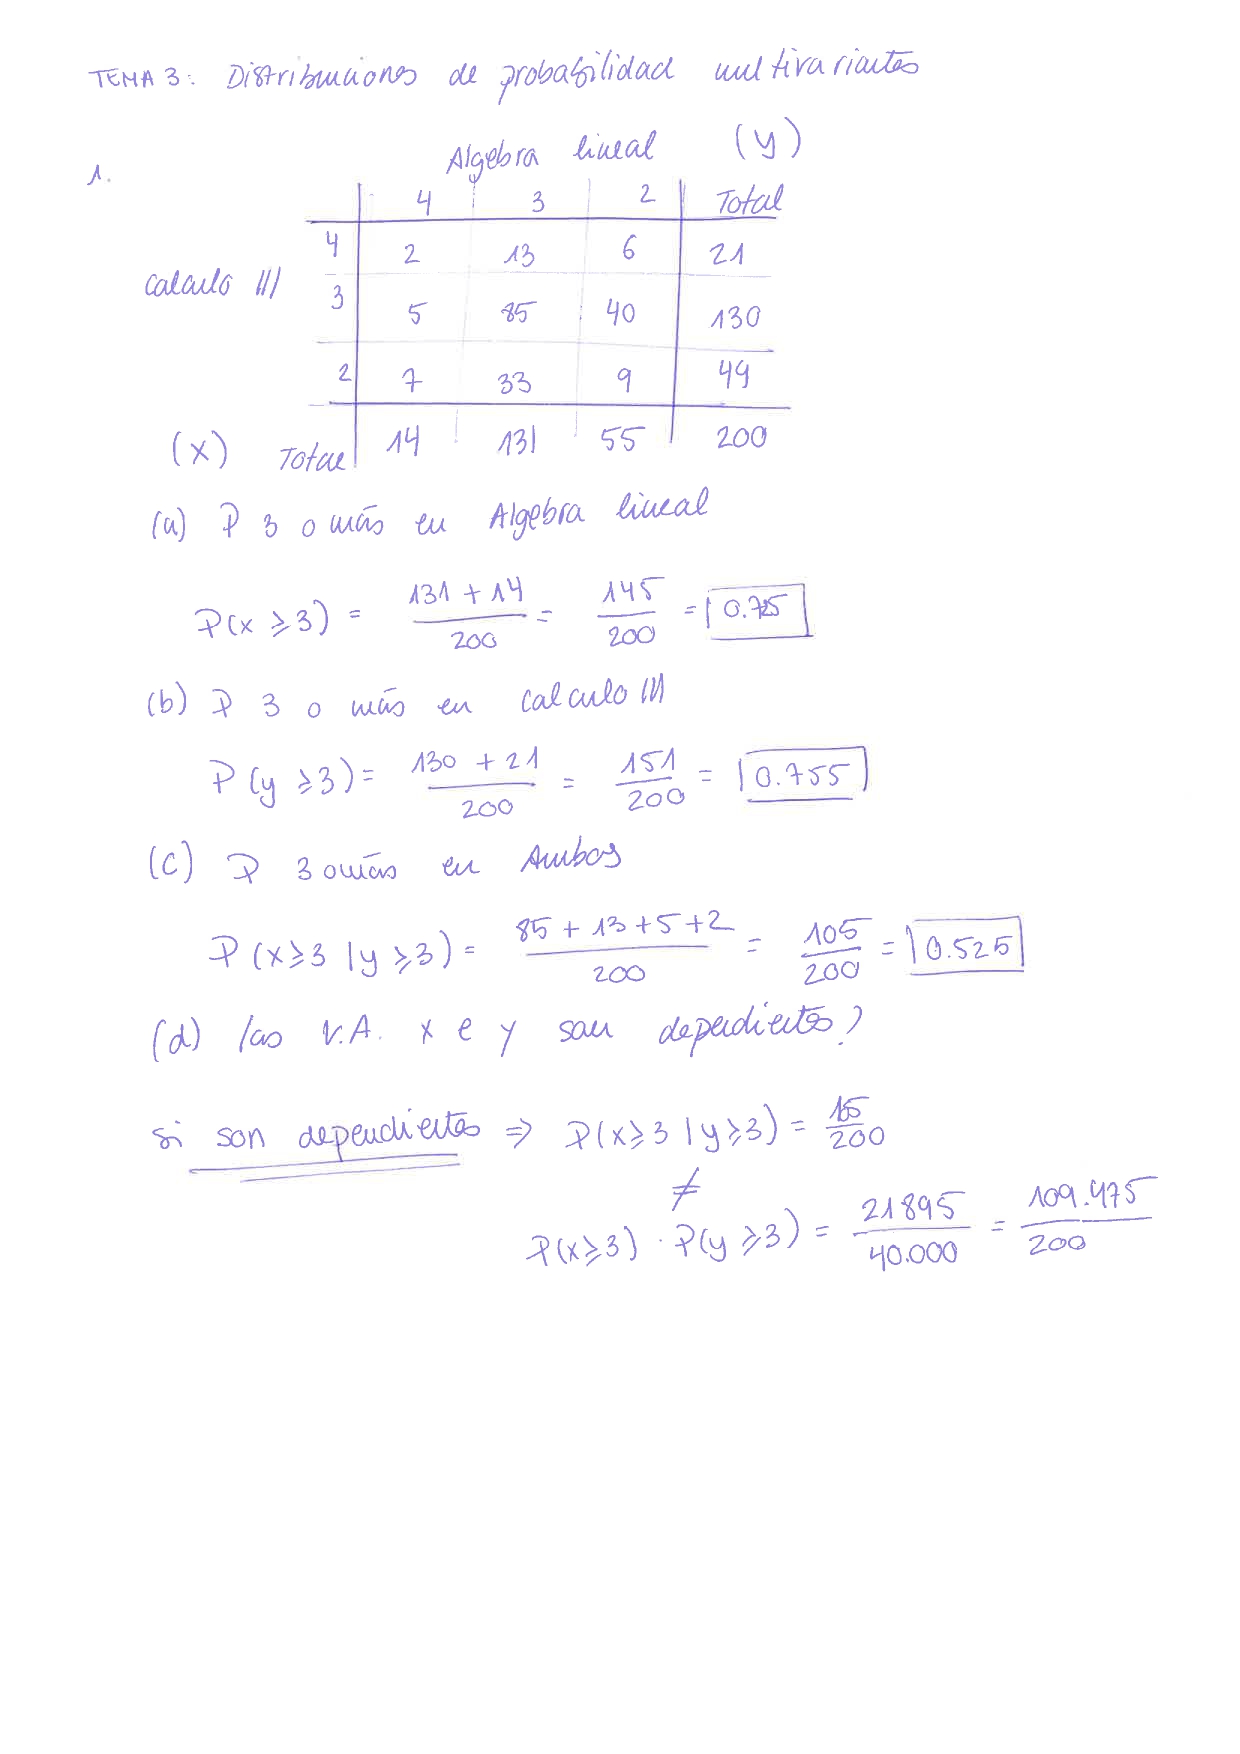 TEMA 3: Distribuciones de probabilidad multivariantes
1.
Algebra lineal (y)
4 3 2 Total
Calculo III
4 2 13 6 21
3 5 85 40 130
2 7 33 9 49
(x) Total 14 131 55 200
(a) P 3 o más en Algebra lineal
P(x ≥ 3) = (131 + 14)/200 = 145/200 = 0.725
(b) P 3 o más en Calculo III
P(y ≥ 3) = (130 + 21)/200 = 151/200 = 0.755
(c) P 3 o más en Ambos
P(x ≥ 3 | y ≥ 3) = (85 + 13 + 5 + 2)/200 = 105/200 = 0.525
(d) las V.A. x e y son dependientes?
si son dependientes ⇒ P(x ≥ 3 | y ≥ 3) = /200
≠
P(x ≥ 3) · P(y ≥ 3) = 21895/40.000 = 109.475/200